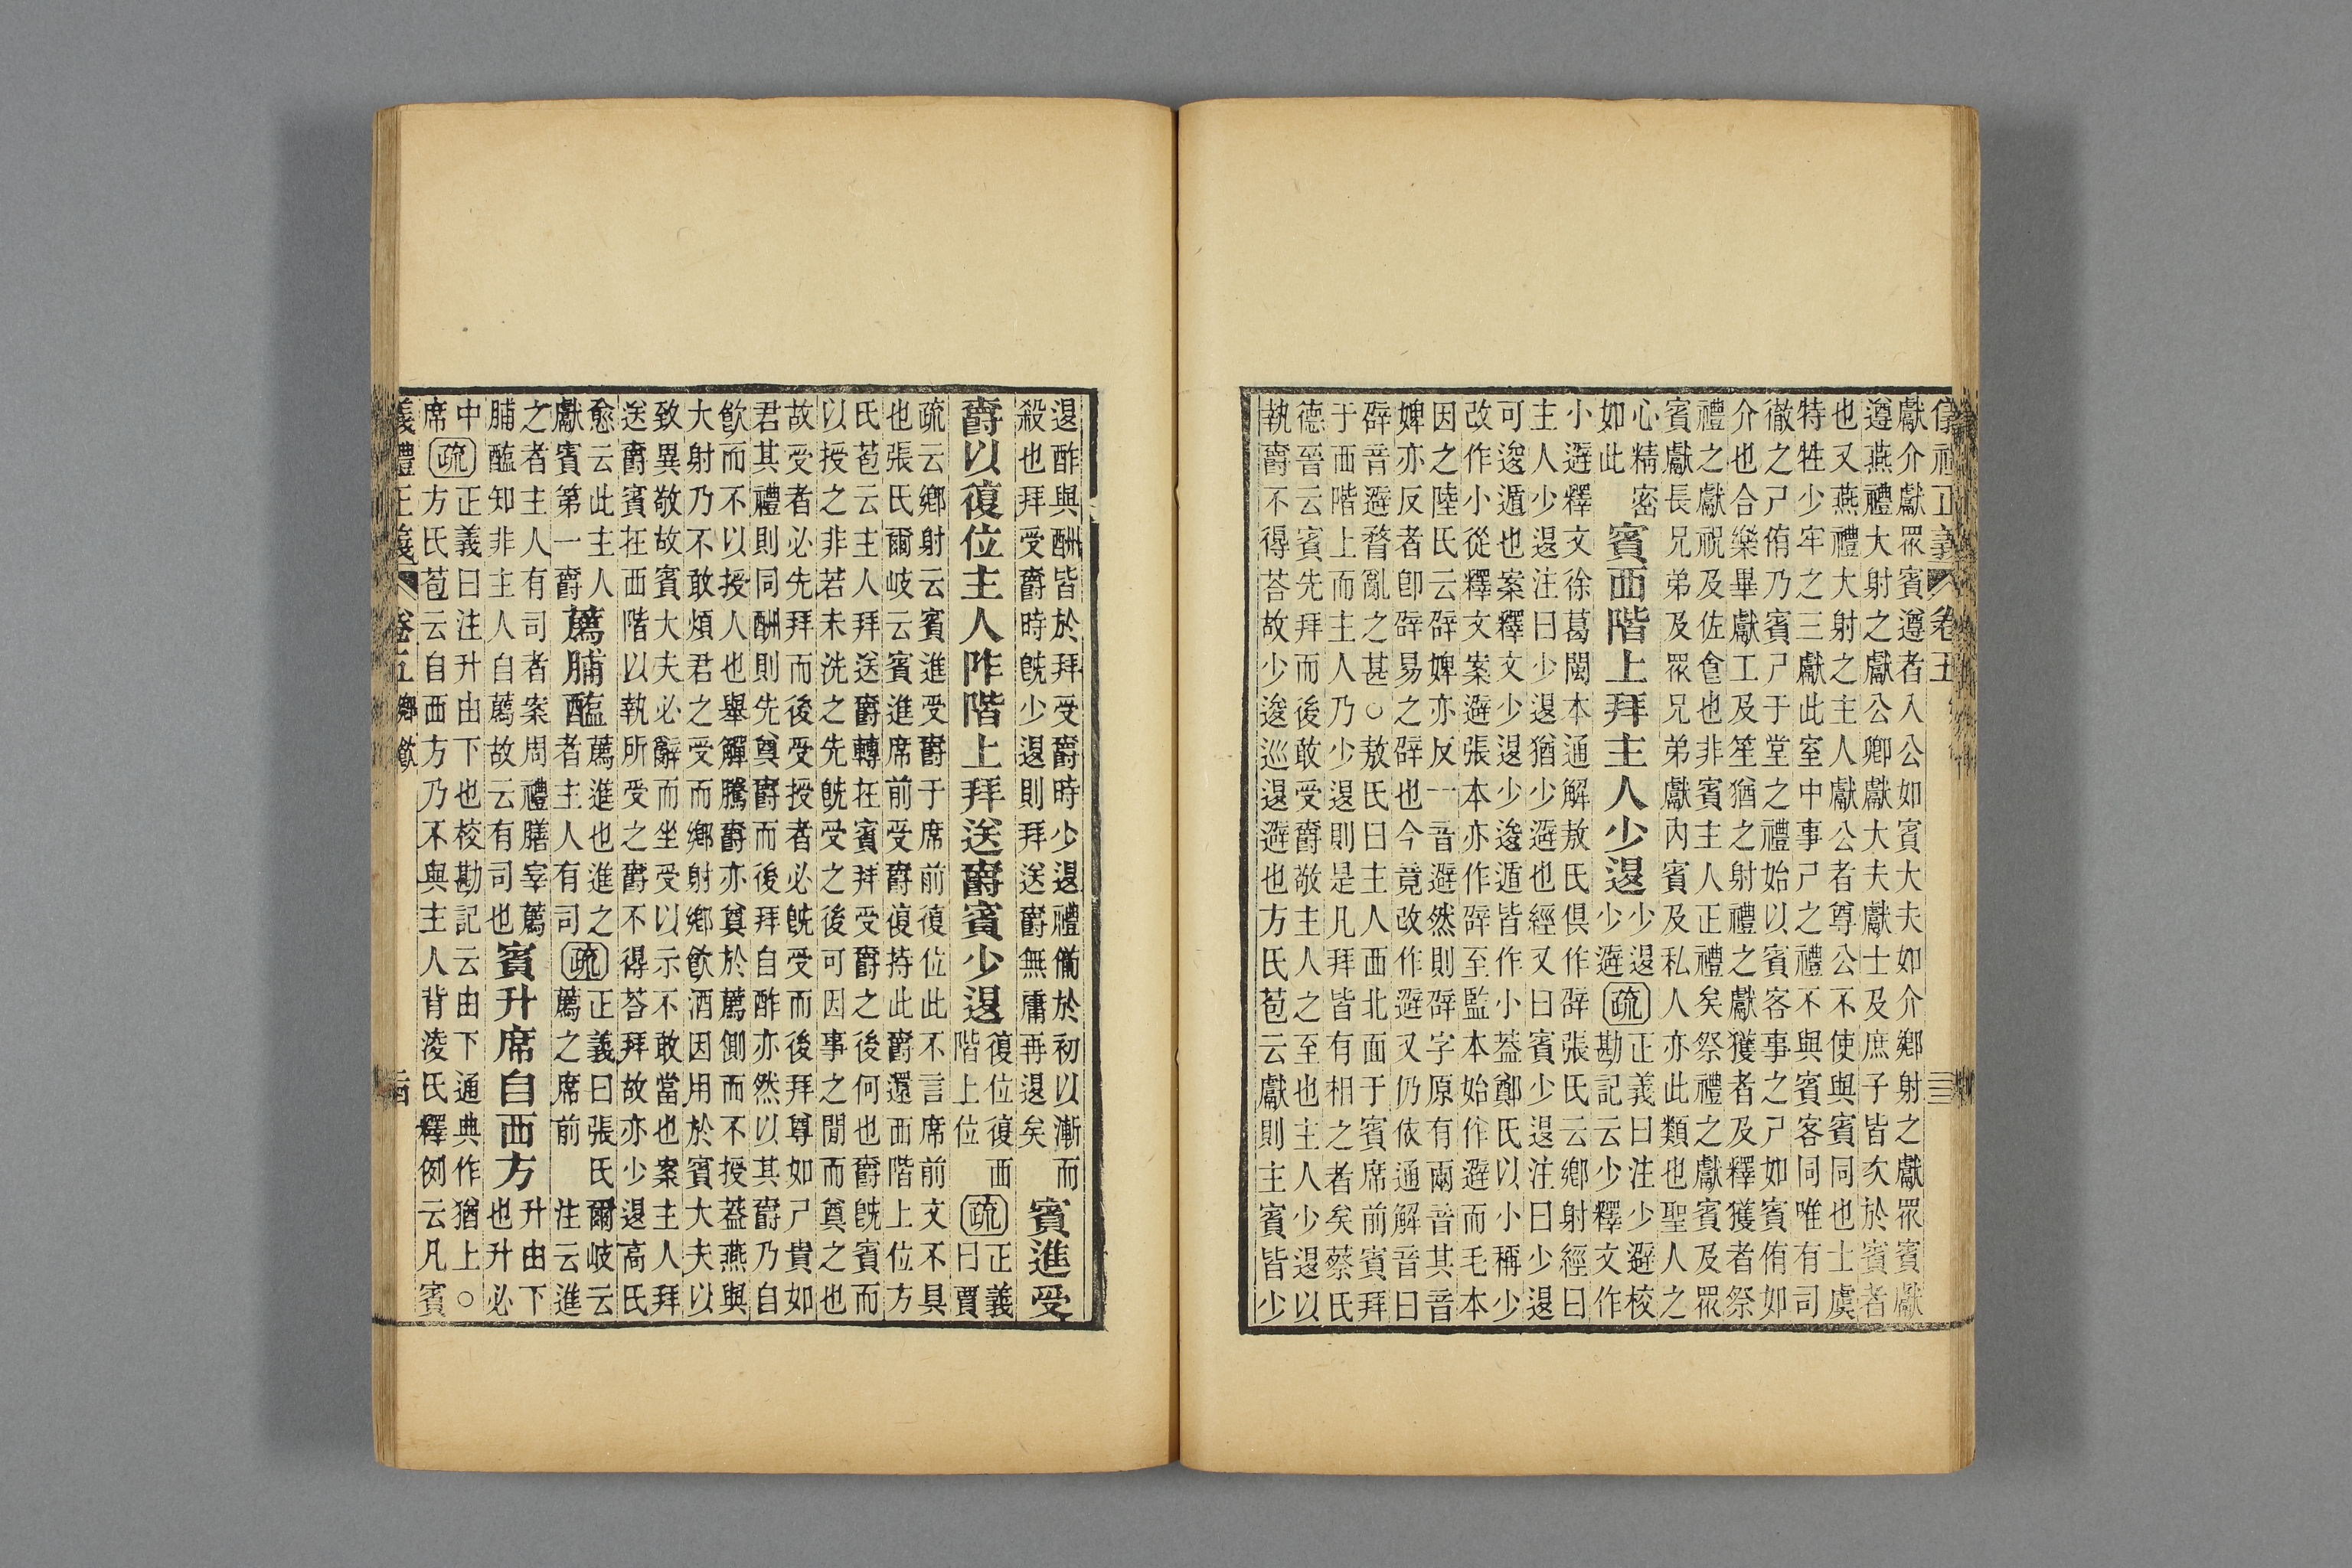 儀禮正義 卷五
獻介獻眾賓遵者入公如賓大夫如介鄉射之獻眾賓獻
遵燕禮大射之獻公卿獻大夫獻士及庶子皆次於賓者
也又燕禮大射之主人獻公者尊公不使與賓同也士虞
特牲少牢之三獻此室中事尸之禮不與賓客同唯有司
徹之尸侑乃賓尸于堂之禮始以賓客事之尸如賓侑如
介也合樂畢獻工及笙猶之射禮之獻獲者及釋獲者祭
禮之獻祝及佐食也非賓主人正禮矣祭禮之獻賓及眾
賓獻長兄弟及眾兄弟獻內賓及私人亦此類也聖人之
心精密如此 賓西階上拜主人少退 少退少避 疏 正義曰注少避校勘記云少釋文作
小避釋文徐葛閩本通解敖氏俱作辟張氏云鄉射經曰
主人少退注曰少退猶少避也經又曰賓少退注曰少退
可逡遁也案釋文少退少逡遁皆作小葢鄭氏以小稱少
改作小從釋文案避張本亦作辟至監本始作避而毛本
因之陸氏云辟婢亦反一音避然則辟字原有兩音其音
婢亦反者卽辟易之辟也今竟改作避又仍依通解音曰
辟音避瞀亂之甚○敖氏曰主人西北面于賓席前賓拜
于西階上而主人乃少退則是凡拜皆有相之者矣蔡氏
德晉云賓先拜而後敢受爵敬主人之至也主人少退以
執爵不得荅故少逡巡退避也方氏苞云獻則主賓皆少
退酢與酬皆於拜受爵時少退禮僃於初以漸而
殺也拜受爵時旣少退則拜送爵無庸再退矣 賓進受
爵以復位主人阼階上拜送爵賓少退 復位復西階上位 疏 正義曰賈
疏云鄉射云賓進受爵于席前復位此不言席前文不具
也張氏爾岐云賓進席前受爵復持此爵還西階上位方
氏苞云主人拜送爵轉在賓拜受爵之後何也爵旣賓而
以授之非若未洗之先旣受之後可因事之閒而奠之也
故受者必先拜而後受授者必旣受而後拜尊如尸貴如
君其禮則同酬則先奠爵而後拜自酢亦然以其爵乃自
飮而不以授人也舉觶騰爵亦奠於薦側而不授葢燕與
大射乃不敢煩君之受而鄉射鄉飮酒因用於賓大夫以
致異敬故賓大夫必辭而坐受以示不敢當也案主人拜
送爵賓在西階以執所受之爵不得荅拜故亦少退高氏
愈云此主人獻賓第一爵 薦脯醢 薦進也進之者主人有司 疏 正義曰張氏爾岐云薦之席前 注云進
之者主人有司者案周禮膳宰薦
脯醢知非主人自薦故云有司也 賓升席自西方 升由下也升必
中席 疏 正義曰注升由下也校勘記云由下通典作猶上○
方氏苞云自西方乃不與主人背淩氏釋例云凡賓
儀禮正義 卷五 鄉飮